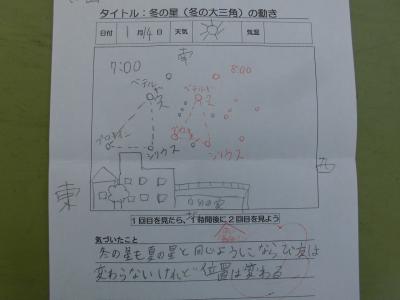 タイトル：冬の星（冬の大三角）の動き
日付 1月14日 天気 気温
南
7:00 8:00
ベテルギウス ベテルギウス
プロキオン
シリウス シリウス
東 西
1回目を見たら、1時間後に2回目を見よう
気づいたこと
冬の星も夏の星と同じようにならび方は
変わらないけれど位置は変わる